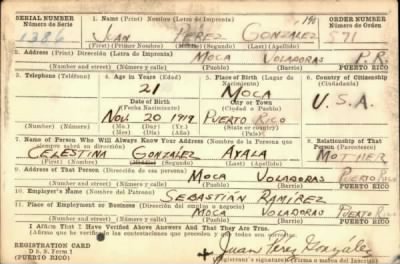 SERIAL NUMBER 1. Name (Print) Nombre (Letra de Imprenta) ORDER NUMBER
Número de Serie Número de Orden
1386 JUAN PEREZ GONZALEZ 571
(First) (Primer Nombre) (Middle) (Segundo) (Last) (Apellido)
2. Address (Print) Dirección (Letra de Imprenta)
MOCA VOLADORAS P.R.
(Number) (Número) (Street) (Calle) (Town) (Pueblo) (Barrio) PUERTO RICO
3. Telephone (Teléfono) 4. Age in Years (Edad) 5. Place of Birth (Lugar de Nacimiento) 6. Country of Citizenship (Ciudadanía)
21 MOCA
Date of Birth City or Town
(Fecha Nacimiento) (Ciudad o Pueblo) U.S.A.
NOV. 20 1919 PUERTO RICO
(Number) (Número) (Mo.) (Mes) (Day) (Día) (Yr.) (Año) (State or country)
7. Name of Person Who Will Always Know Your Address (Nombre de la Persona que siempre sabrá su dirección) 8. Relationship of That Person (Parentesco)
CELESTINA GONZALEZ AYALA MOTHER
(First) (Nombre) (Middle) (Segundo) (Last) (Apellido)
9. Address of That Person (Dirección de esa persona)
MOCA VOLADORAS PUERTO RICO
(Number) (Número) (Street) (Calle) (Town) (Pueblo) (Barrio) PUERTO RICO
10. Employer's Name (Patrono)
SEBASTIAN RAMIREZ
11. Place of Employment or Business (Dirección del empleo o negocio)
MOCA VOLADORAS PUERTO RICO
(Number) (Número) (Street) (Calle) (Town) (Pueblo) (Barrio) PUERTO RICO
I Affirm That I Have Verified Above Answers And That They Are True.
(Afirmo que he verificado las contestaciones que preceden y que todas son ciertas.)
REGISTRATION CARD Juan Perez Gonzalez
D.S.S. Form 1
(PUERTO RICO) Registrant's signature